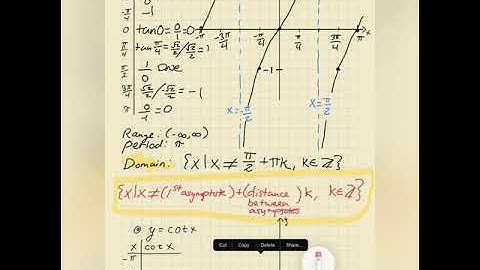 -π/4 | -1
0 | tan0=0/1=0
π/4 | tanπ/4=√2/2/√2/2=1
π/2 | 1/0 DNE
3π/4 | √2/2/-√2/2=-1
π | 0/-1=0
-π -3π/4 -π/4 π/4 3π/4 π x
-1
x=-π/2
x=π/2
Range: (-∞,∞)
period: π
Domain: {x|x≠π/2+πk, k∈ℤ}
{x|x≠(1st asymptote)+(distance between asymptotes)k, k∈ℤ}
@ y=cotx
y
x | cotx
-π
Cut Copy Delete Share...